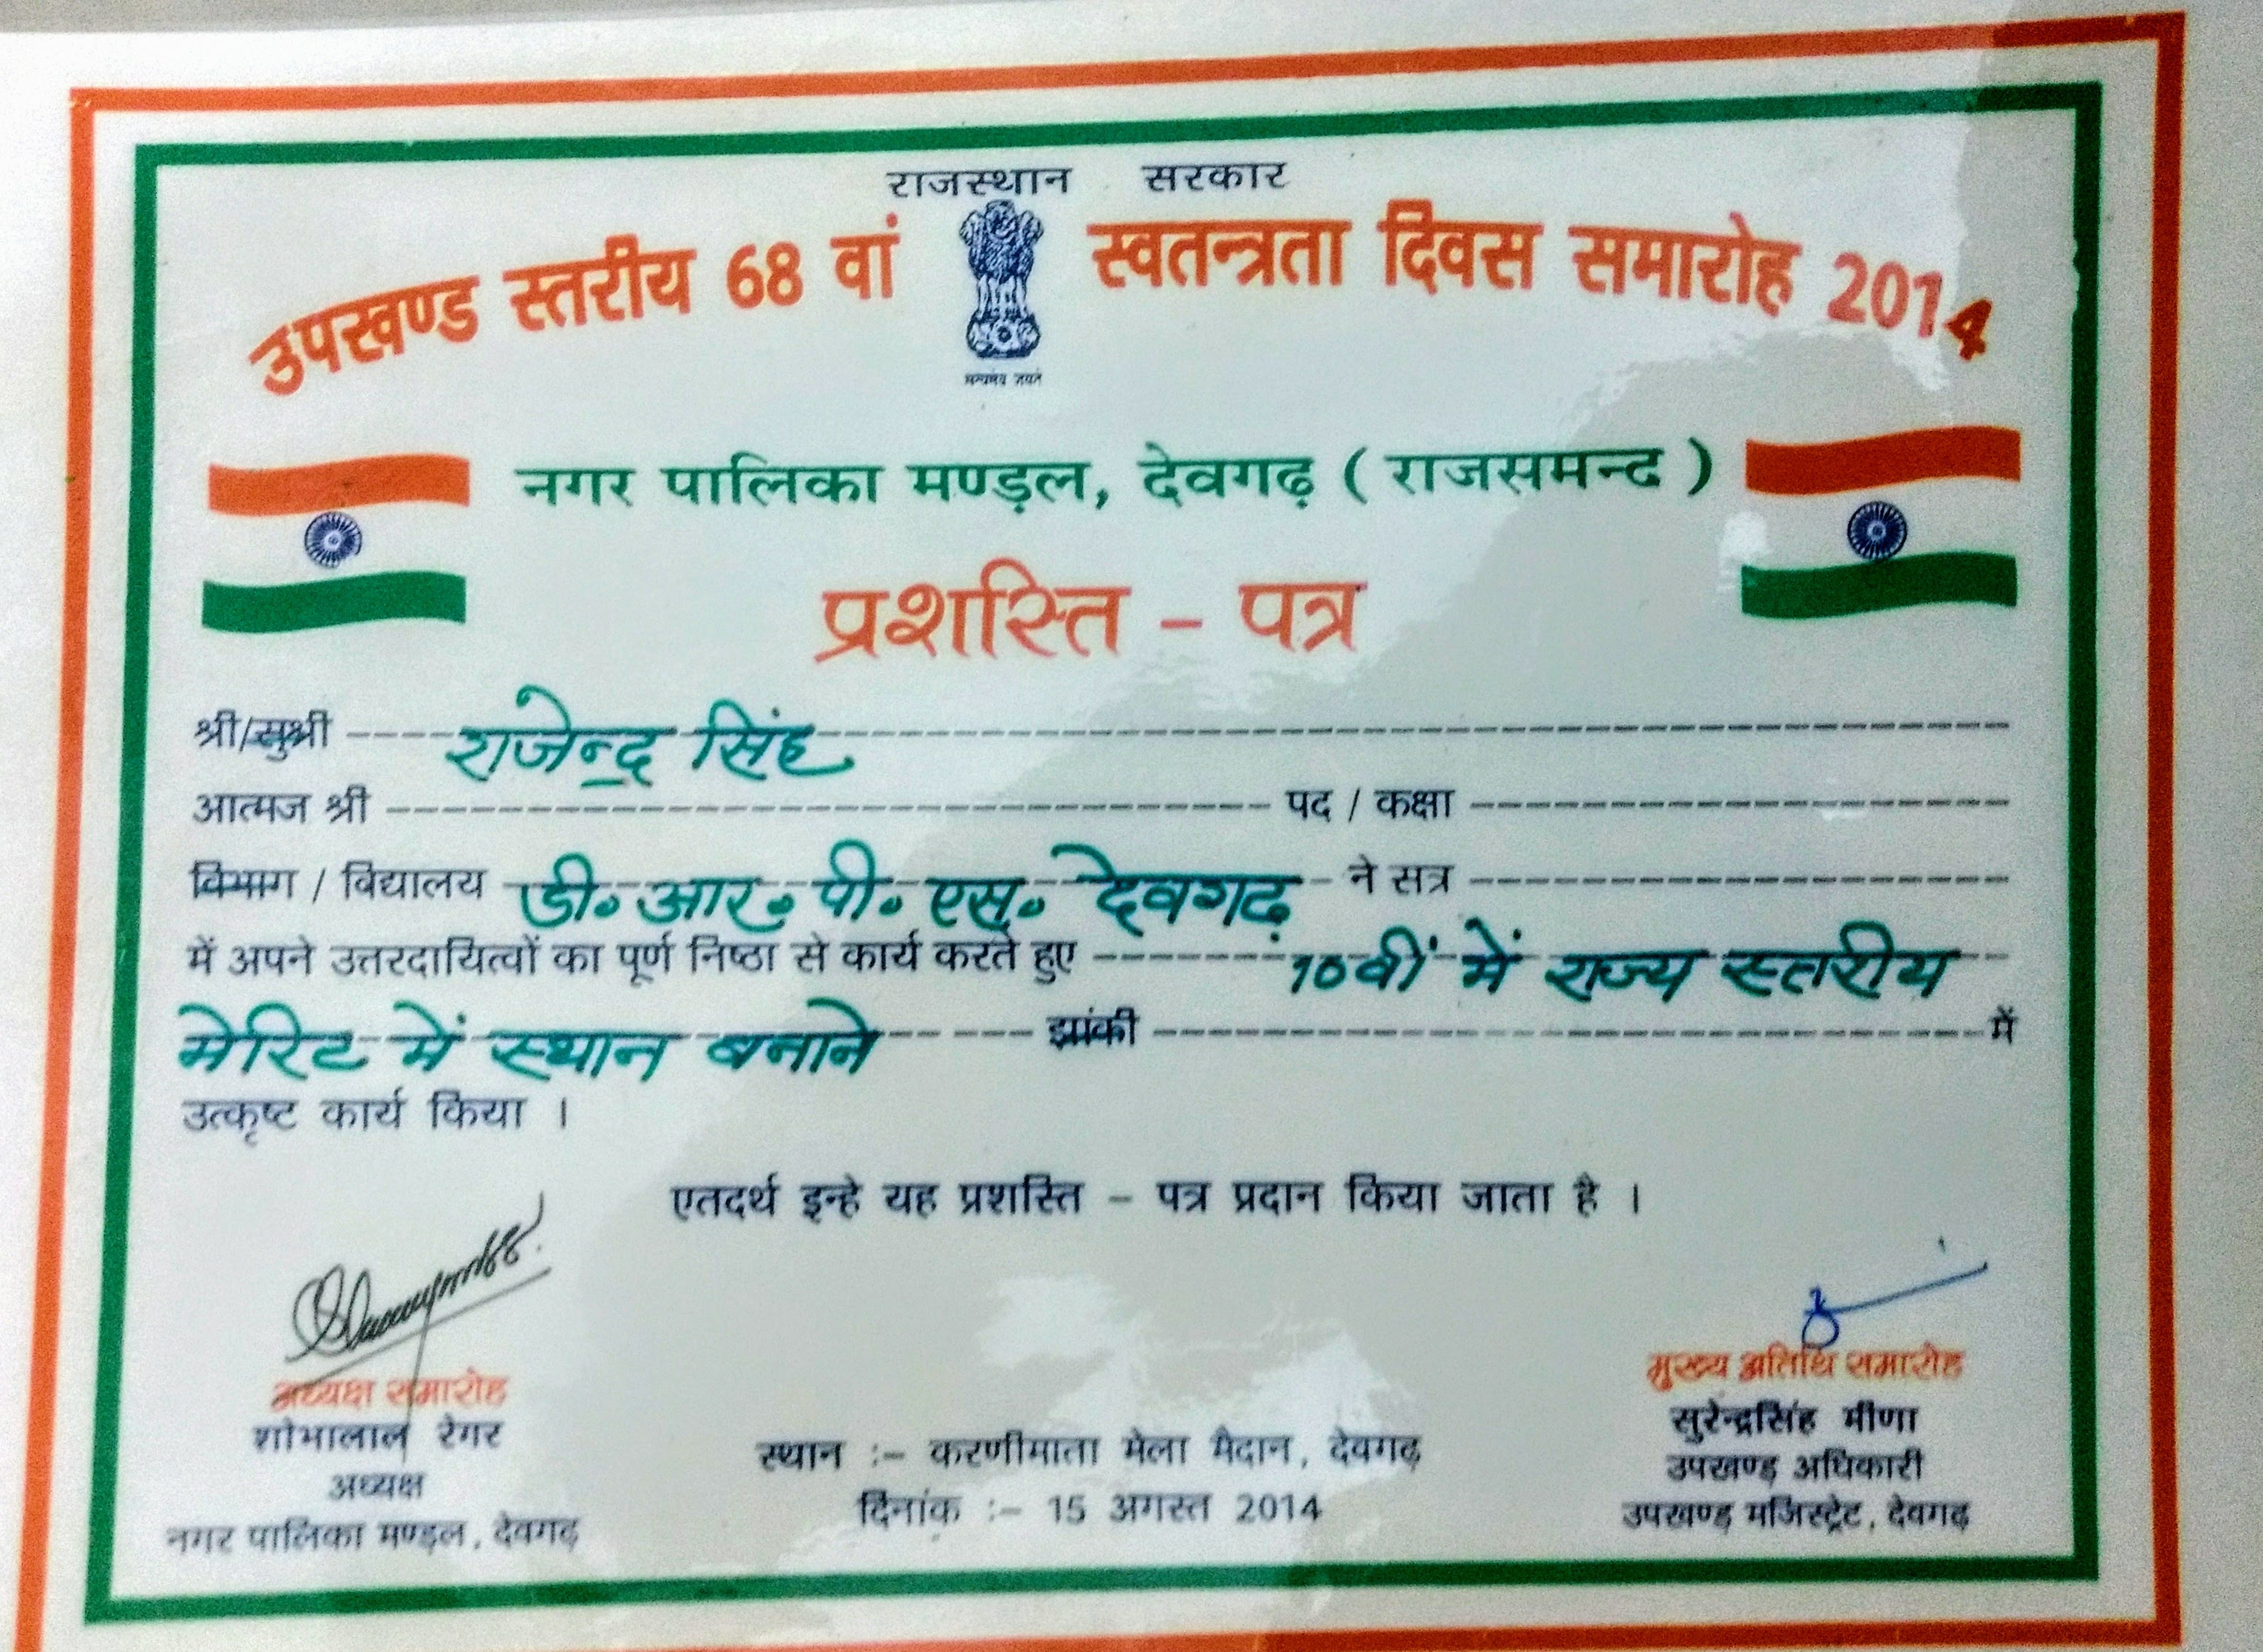 राजस्थान सरकार
उपखण्ड स्तरीय 68 वां स्वतन्त्रता दिवस समारोह 2014
सत्यमेव जयते
नगर पालिका मण्डल, देवगढ़ ( राजसमन्द )
प्रशस्ति - पत्र
श्री/सुश्री राजेन्द्र सिंह
आत्मज श्री पद / कक्षा
विभाग / विद्यालय डी. आर. पी. एस. देवगढ़ ने सत्र
में अपने उत्तरदायित्वों का पूर्ण निष्ठा से कार्य करते हुए 10वीं में राज्य स्तरीय
मेरिट में स्थान बनाने झांकी में
उत्कृष्ट कार्य किया ।
एतदर्थ इन्हे यह प्रशस्ति - पत्र प्रदान किया जाता है ।
अध्यक्ष समारोह
शोभालाल रेगर
अध्यक्ष
नगर पालिका मण्डल, देवगढ़
स्थान :- करणीमाता मेला मैदान, देवगढ़
दिनांक :- 15 अगस्त 2014
मुख्य अतिथि समारोह
सुरेन्द्रसिंह मीणा
उपखण्ड अधिकारी
उपखण्ड मजिस्ट्रेट, देवगढ़